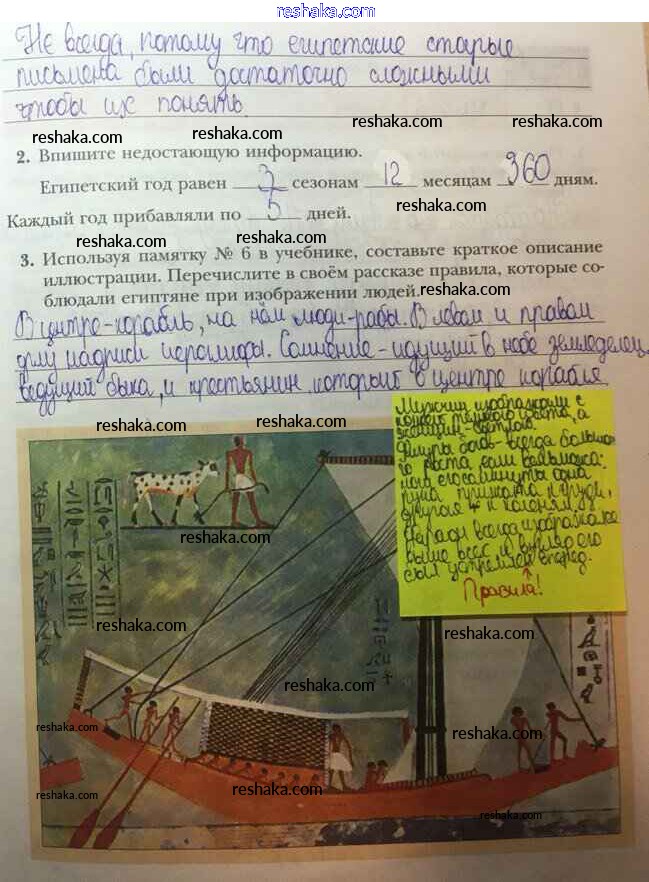 reshaka.com
Не всегда, потому что египетские старые
письмена были достаточно сложными
чтобы их понять.
reshaka.com
reshaka.com
reshaka.com
2. Впишите недостающую информацию.
Египетский год равен 3 сезонам 12 месяцам 360 дням.
reshaka.com
Каждый год прибавляли по 5 дней.
reshaka.com
reshaka.com
3. Используя памятку № 6 в учебнике, составьте краткое описание
иллюстрации. Перечислите в своём рассказе правила, которые со-
блюдали египтяне при изображении людей.
reshaka.com
В центре-корабль, на нём люди-рабы. В левом и правом
углу надписи иероглифы. идущий в небе земледелец,
ведущий быка, и крестьянин который в центре корабля
reshaka.com
reshaka.com
reshaka.com
Мужчин изображали с
кожей тёмного цвета, а
женщин-светлого.
Фигуры богов-всегда большо-
го роста, если вельможа:
ноги его сдвинуты одна
рука прижата к груди,
другая - к коленям
Фараон всегда изображался
выше всех, и взгляд его
был устремлён вперёд.
Правила!
reshaka.com
reshaka.com
reshaka.com
reshaka.com
reshaka.com
reshaka.com
reshaka.com
reshaka.com
reshaka.com
reshaka.com
reshaka.com
reshaka.com